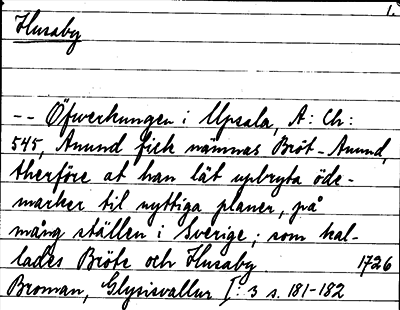 1.
Husaby
-- Öfwerkungen i Upsala, A: Ch:
545, Anund fick nämnas Bröt-Anund,
therföre at han lät upbryta öde-
marker til nyttiga planer, på
mång ställen i Sverige; som kal-
lades Bröte och Husaby 1726
Broman, Glysisvallur I: 3 s. 181-182